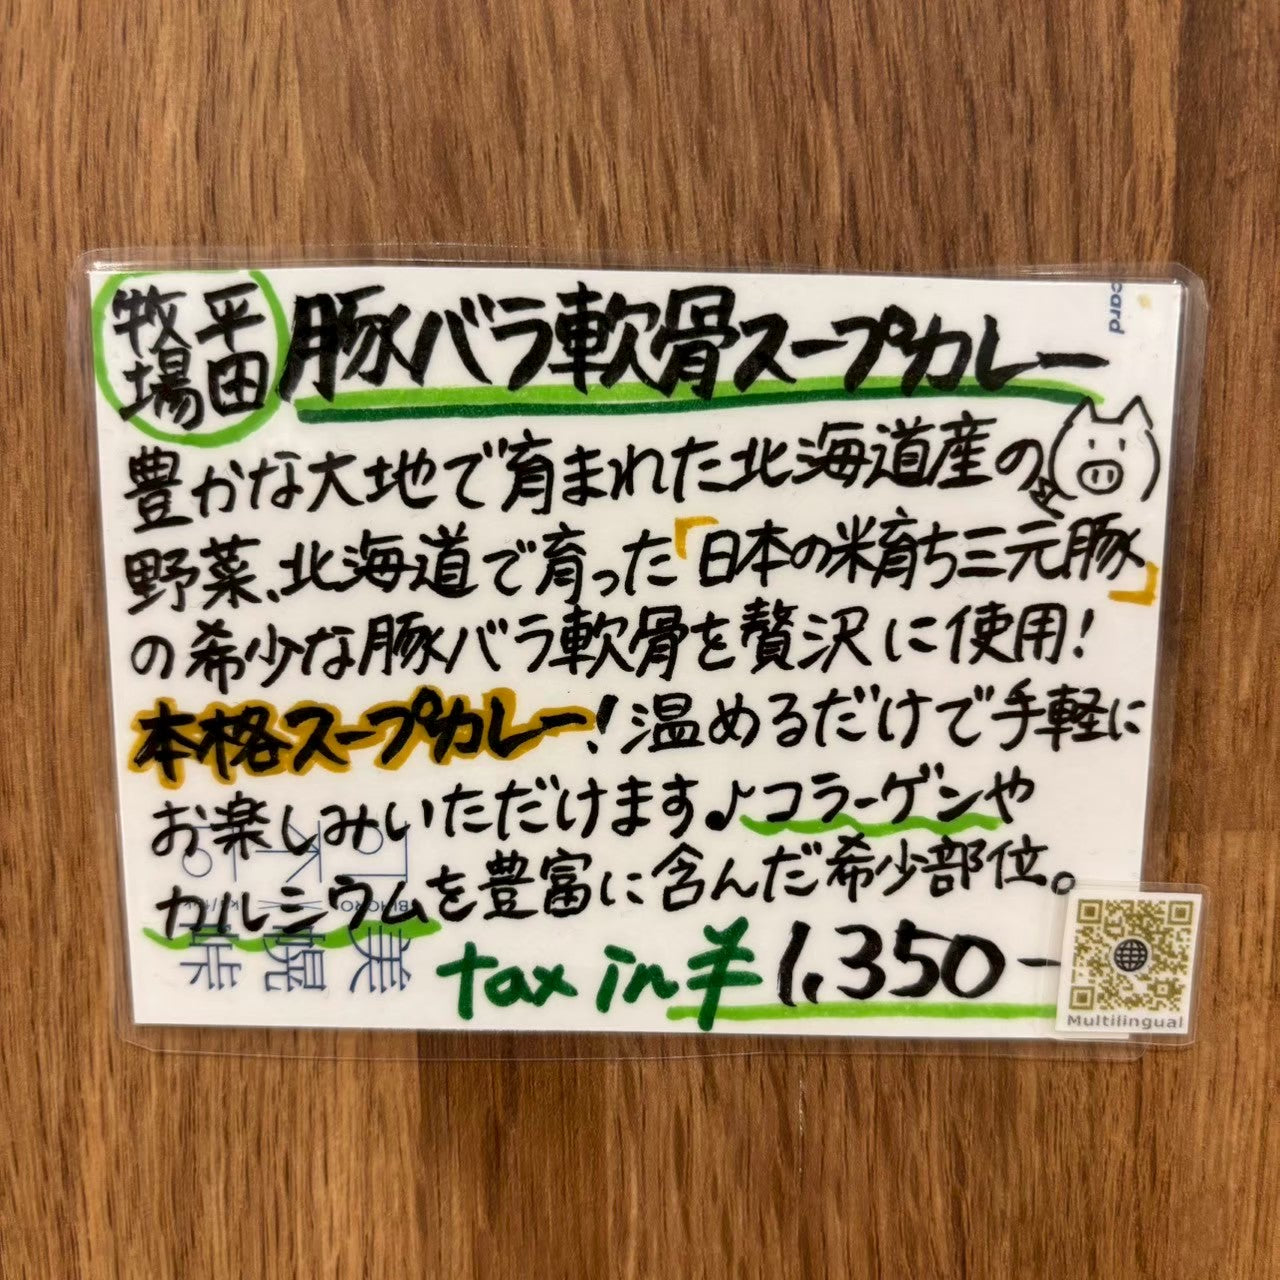 平田牧場 豚バラ軟骨スープカレー
豊かな大地で育まれた北海道産の
野菜、北海道で育った「日本の米育ち三元豚」
の希少な豚バラ軟骨を贅沢に使用!
本格スープカレー!温めるだけで手軽に
お楽しみいただけます♪コラーゲンや
カルシウムを豊富に含んだ希少部位。
tax in ¥1,350-
Multilingual
card
美幌峠
BIHORO